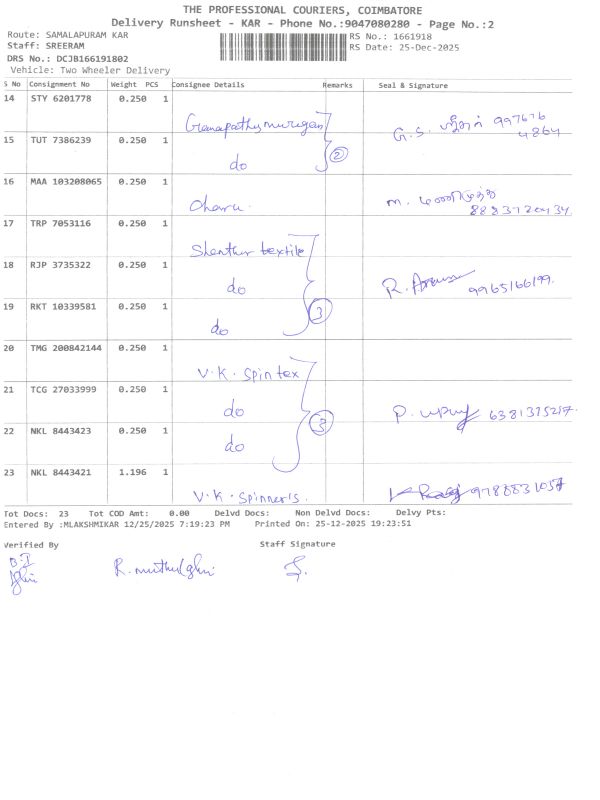 THE PROFESSIONAL COURIERS, COIMBATORE
Delivery Runsheet - KAR - Phone No.:9047080280 - Page No.:2
Route: SAMALAPURAM KAR
RS No.: 1661918
Staff: SREERAM
RS Date: 25-Dec-2025
DRS No.: DCJB166191802
Vehicle: Two Wheeler Delivery
S No Consignment No Weight PCS Consignee Details Remarks Seal & Signature
14 STY 6201778 0.250 1
Ganapathy murugan
G.S. 997676
4864
15 TUT 7386239 0.250 1
do
2
16 MAA 103208065 0.250 1
Charu.
m.
8883720434
17 TRP 7053116 0.250 1
textile
18 RJP 3735322 0.250 1
do
R. 9965166199.
19 RKT 10339581 0.250 1
do
3
20 TMG 200842144 0.250 1
V.K. Spintex
21 TCG 27033999 0.250 1
do
3
P. 6381375217.
22 NKL 8443423 0.250 1
do
23 NKL 8443421 1.196 1
V.K. Spinners.
9788831057
Tot Docs: 23 Tot COD Amt: 0.00 Delvd Docs: Non Delvd Docs: Delvy Pts:
Entered By :MLAKSHMIKAR 12/25/2025 7:19:23 PM Printed On: 25-12-2025 19:23:51
Verified By
Staff Signature